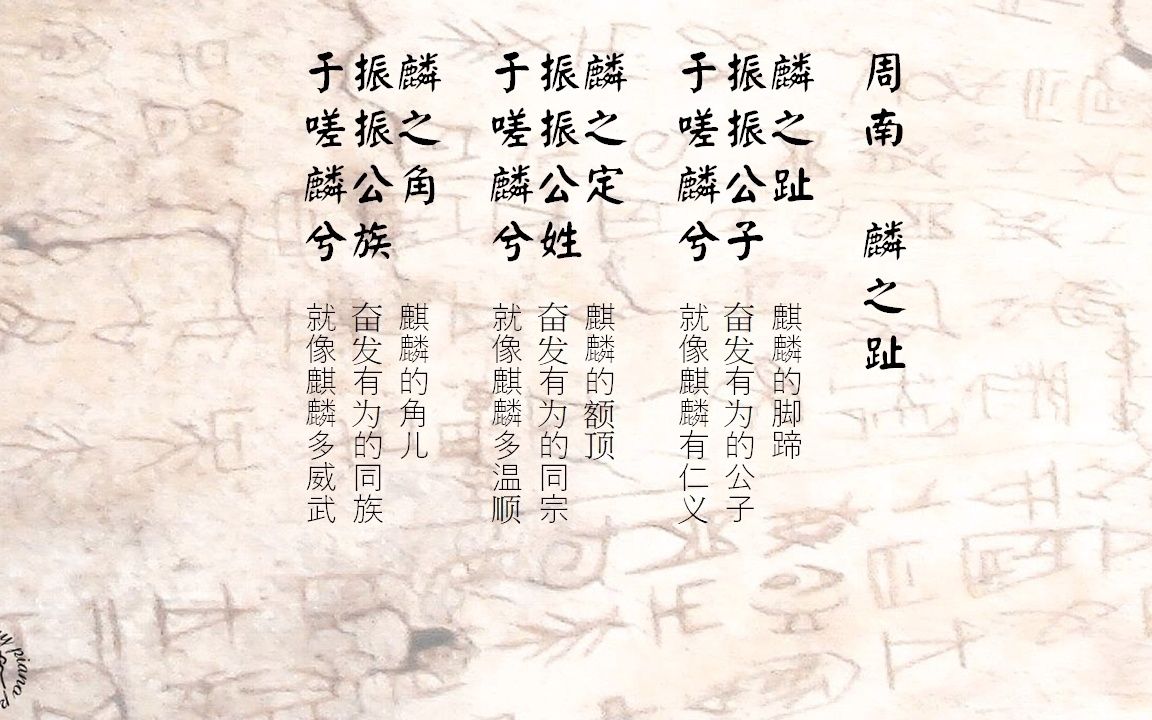 周南 麟之趾
麟之趾
振振公子
于嗟麟兮
麒麟的脚蹄
奋发有为的公子
就像麒麟有仁义
麟之定
振振公姓
于嗟麟兮
麒麟的额顶
奋发有为的同宗
就像麒麟多温顺
麟之角
振振公族
于嗟麟兮
麒麟的角儿
奋发有为的同族
就像麒麟多威武
piano